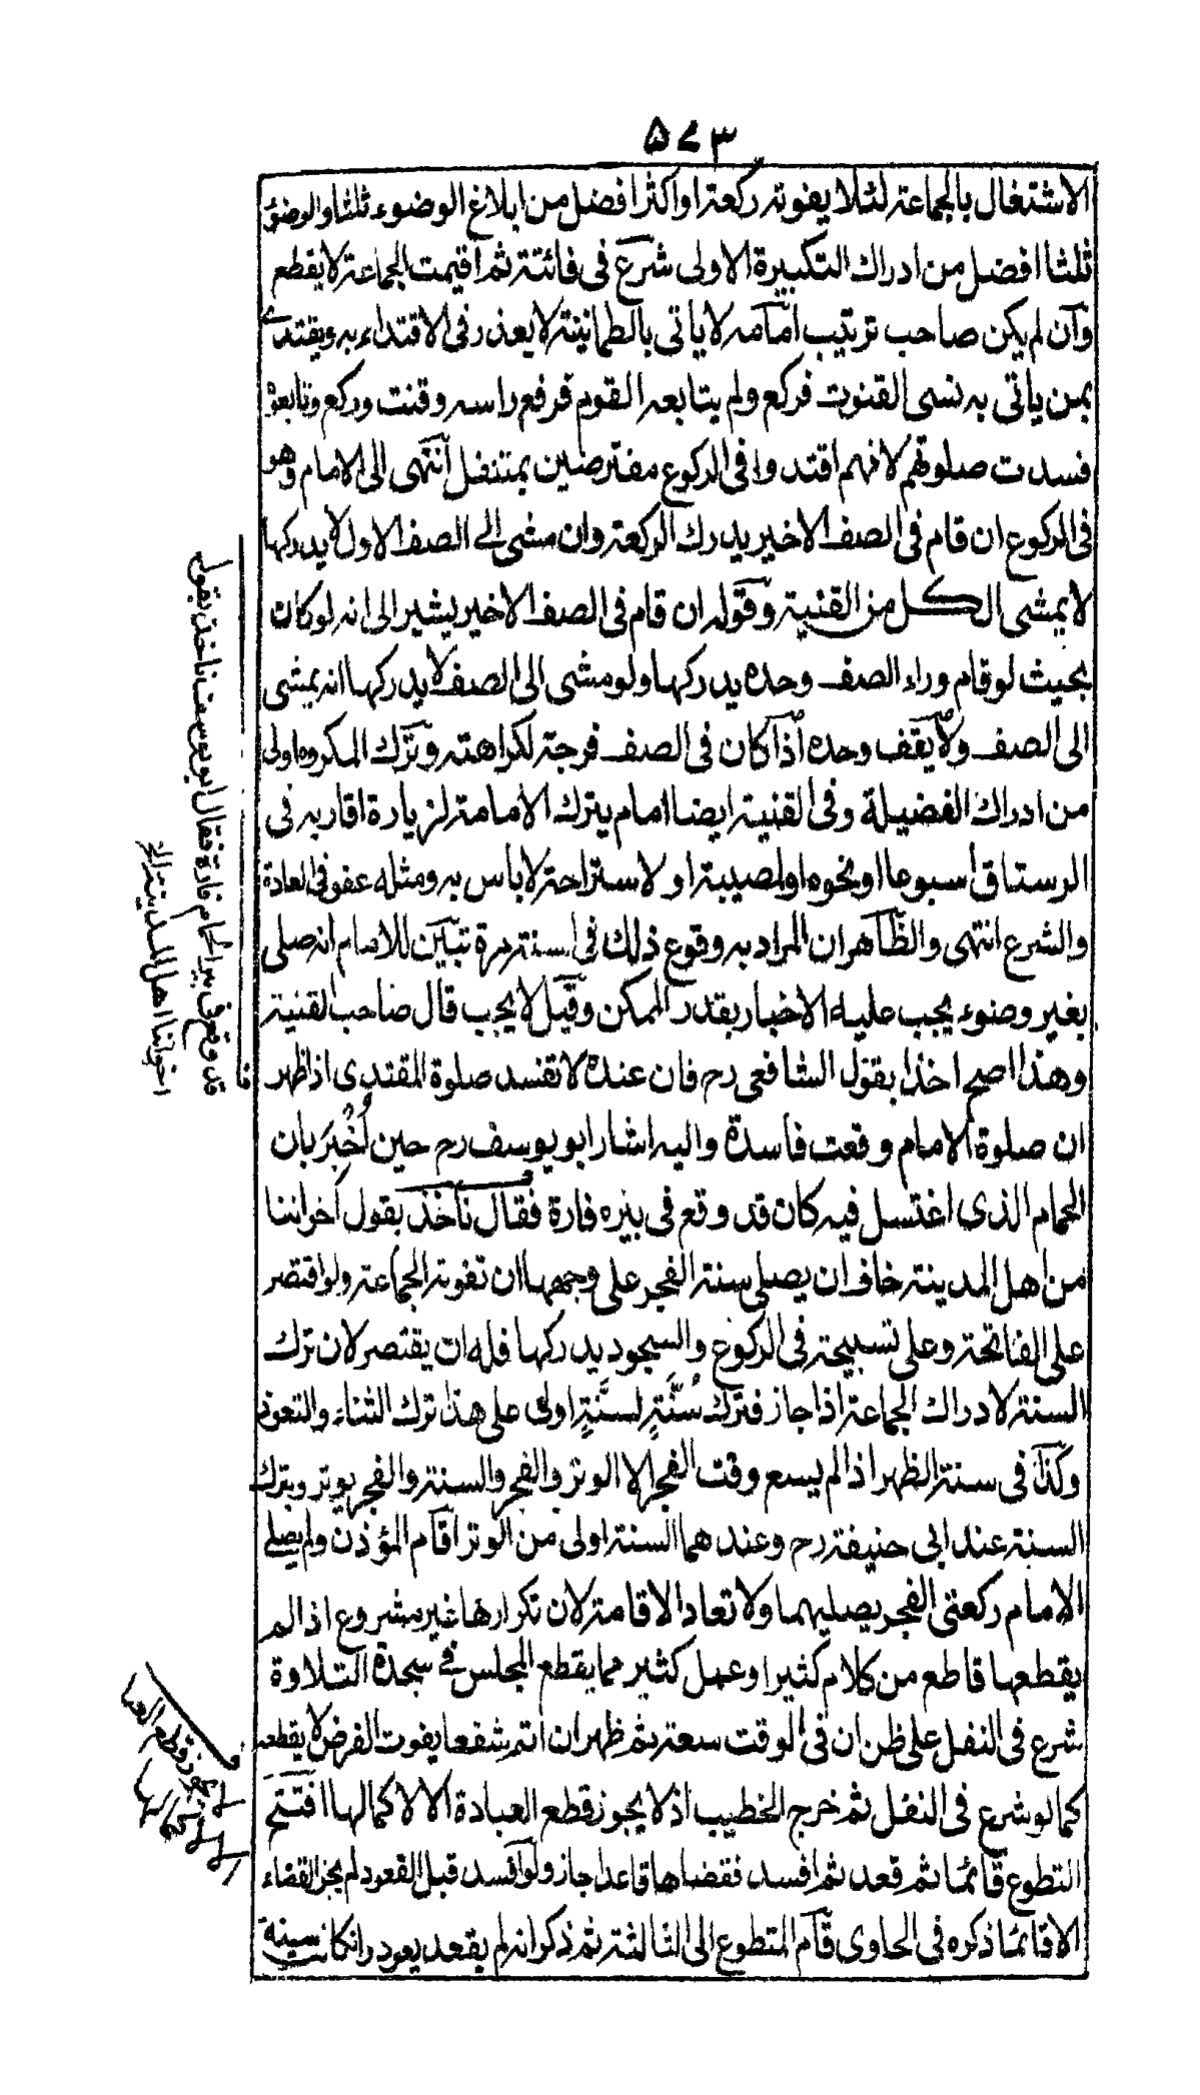 ۵۷۳
الاشتغال بالجماعة لئلا يفوته ركعة او اكثر افضل من ابلاغ الوضوء ثلثا والوضوء
ثلثا افضل من ادراك التكبيرة الاولى شرع فى فائتة ثم اقيمت الجماعة لا يقطع
وان لم يكن صاحب ترتيب امامه لا ياتى بالطمانية لا يعذر فى الاقتداء به ويقتدى
بمن ياتى به نسى القنوت فركع ولم يتابعه القوم فرفع راسه وقنت وركع وتابعوه
فسدت صلوتهم لانهم اقتدوا فى الركوع مفترضين بمتنفل انتهى الى الامام وهو
فى الركوع ان قام فى الصف الاخير يدرك الركعة وان مشى الى الصف الاول لا يدركها
لا يمشى الكل من القنية وقوله ان قام فى الصف الاخير يشير الى انه لو كان
بحيث لو قام وراء الصف وحده يدركها ولو مشى الى الصف لا يدركها انه يمشى
الى الصف ولا يقف وحده اذا كان فى الصف فرجة لكراهته وترك المكروه اولى
من ادراك الفضيلة وفى القنية ايضا امام يترك الامامة لزيارة اقاربه فى
الرستاق اسبوعا او نحوه او لمصيبة او لاستراحة لا باس به ومثله عفو فى العادة
والشرع انتهى والظاهر ان المراد به وقوع ذلك فى السنة مرة تبين للامام انه صلى
بغير وضوء يجب عليه الاخبار بقدر الممكن وقيل لا يجب قال صاحب القنية
وهذا اصح اخذا بقول الشافعى رح فان عنده لا تفسد صلوة المقتدى اذا ظهر
ان صلوة الامام وقعت فاسدة واليه اشار ابو يوسف رح حين اُخْبِرَ بان
الحمام الذى اغتسل فيه كان قد وقع فى بئره فارة فقال ناخذ بقول اخواننا
من اهل المدينة خاف ان يصلى سنة الفجر على وجهها ان تفوته الجماعة ولو اقتصر
على الفاتحة وعلى تسبيحة فى الركوع والسجود يدركها فله ان يقتصر لان ترك
السنة لادراك الجماعة اذا جاز فترك سُنَّةٍ لسنَّةٍ اولى على هذا ترك الثناء والتعوذ
وكذا فى سنة الظهر اذا لم يسع وقت الفجر الا الوتر والفجر والسنة والفجر يوتر ويترك
السنة عند ابى حنيفة رح وعندهما السنة اولى من الوتر اقام المؤذن ولم يصل
الامام ركعتى الفجر يصليهما ولا تعاد الاقامة لان تكرارها غير مشروع اذا لم
يقطعها قاطع من كلام كثير او عمل كثير مما يقطع المجلس فى سجدة التلاوة
شرع فى النفل على ظن ان فى الوقت سعة ثم ظهر ان اتم شفعا يفوت الفرض لا يقطعه
كما لو شرع فى النفل ثم خرج الخطيب اذ لا يجوز قطع العبادة الا لاكمالها افتتح
التطوع قائما ثم قعد ثم افسد فقضاها قاعدا جاز ولو افسد قبل القعود لم يجز القضاء
الا قائما ذكره فى الحاوى قام المتطوع الى الثالثة ثم ذكر انه لم يقعد يعود وان كانت سنة
قد وقع فى بير الحمام فارة فقال ابو يوسف ناخذ بقول
اخواننا اهل المدينة الخ